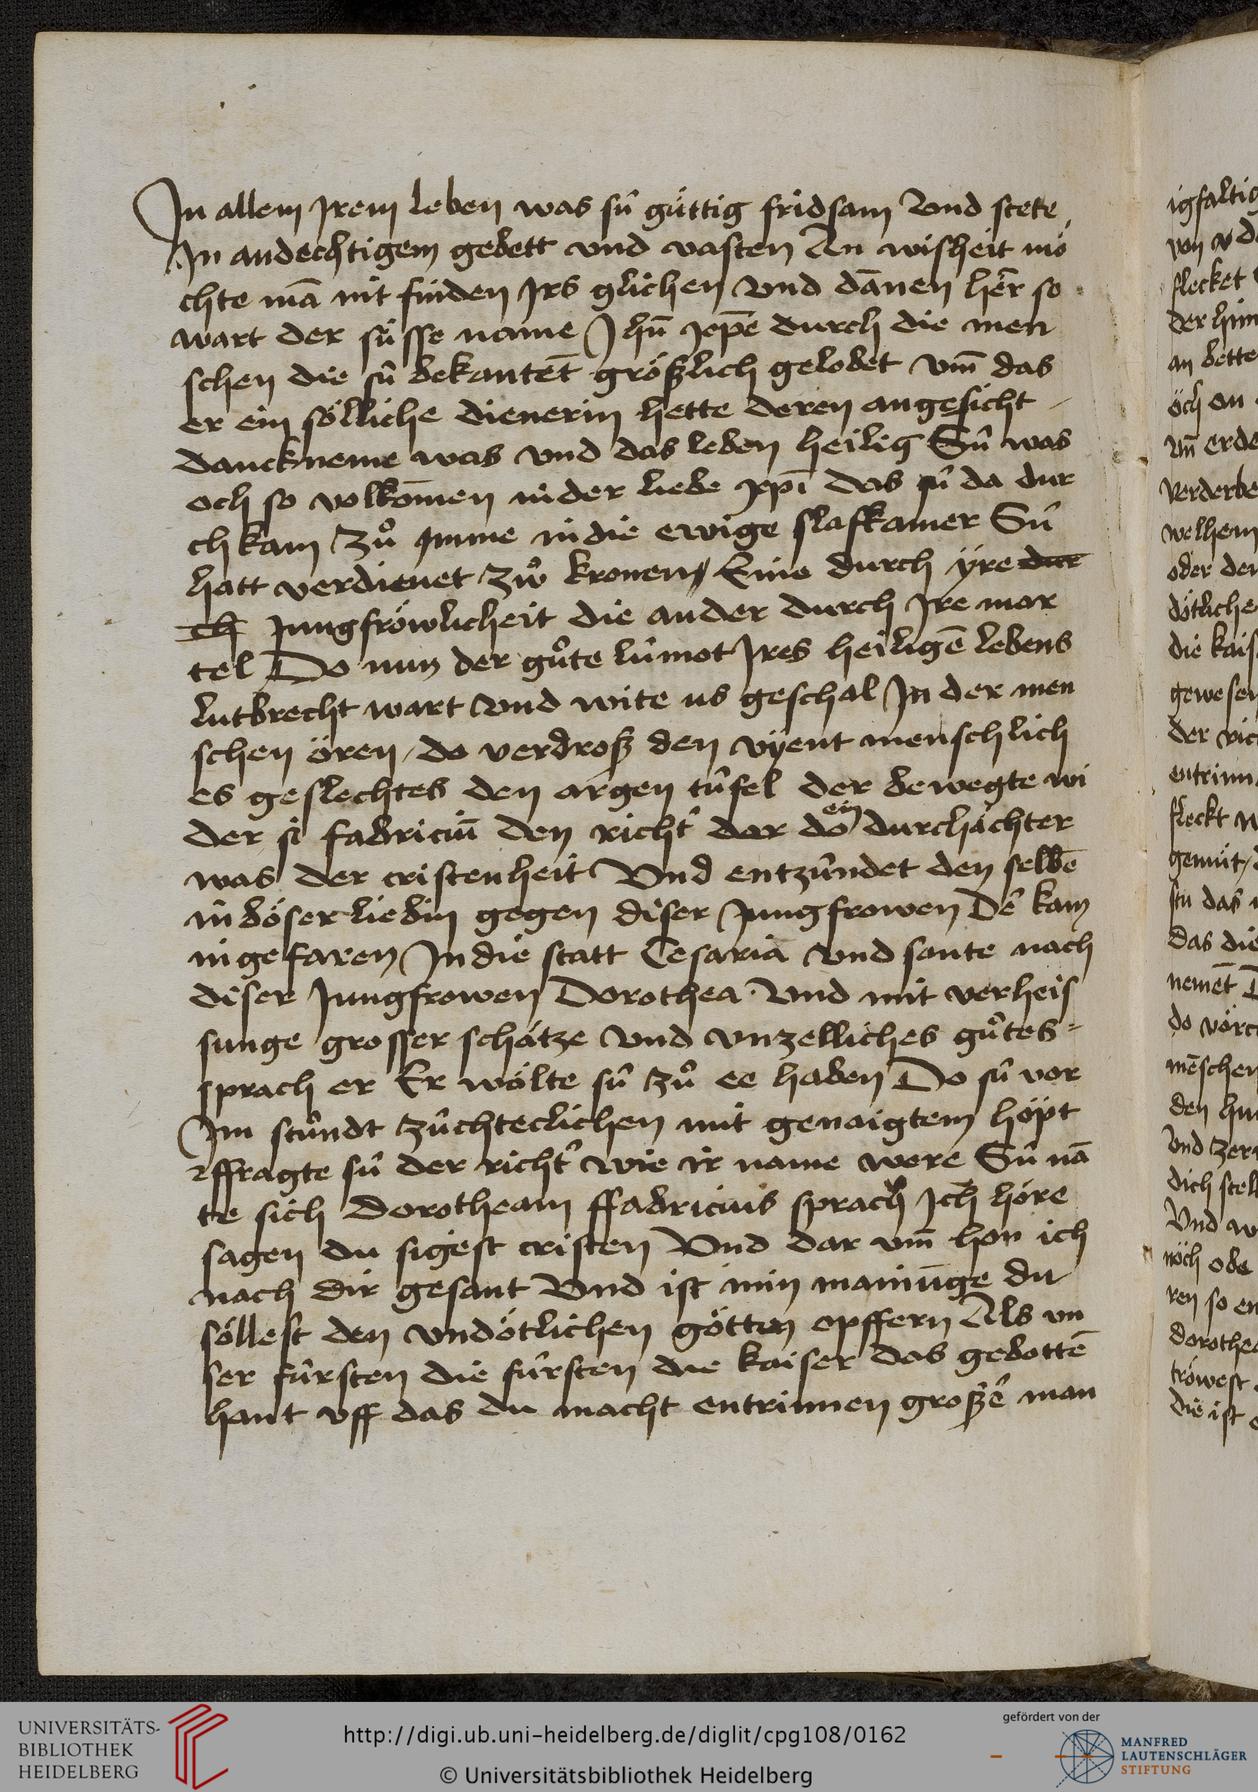 In allem Jrem leben was sú gúttig fridsam Vnd stete
In andechtigem gebett vnd vasten An wisheit mö
chte mā nit finden Jrs glichen Vnd dānen hēr so
wart der süsse name Jhū xp̄e durch die men
schen die sú bekantēt größlich gelobet vm̄ das
er ein sölliche dienerin hette deren angesicht
danckneme was vnd das leben heilig Sú was
och so volkōmen in der liebe xp̄i das sú da dur
ch kam zů Imme in die ewige slafkamer Sú
hatt verdienet zwo kronen Eine durch yre dur
ch Jungfröwlicheit die ander durch Jre mar
tel Do nun der gůte lúmot Jres heiligē lebens
lutbrecht wart Vnd wite us geschal In der men
schen ören do verdroß den vÿent menschlich
es geslechtes den argen túfel der bewegte wi
der si fabriciū den richt' der do ein durchächter
was der cristenheit Vnd entzúndet den selbē
in böser liebin gegen diser Jungfrowen De' kam
in gefaren In die statt Cesaria Vnd sante nach
diser Jungfrowen Dorothea Vnd mit verheis
sunge grosser schätze Vnd vnzelliches gůtes=
sprach er Er wölte sú zů ee haben Do sú vor
Im stůndt zúchteclichen mit genaigtem höpt
ffragte sú der richt' wie ir name were Sú nā
te sich Dorotheam ffabricius sprach Jch höre
sagen du sigest cristen Vnd dar vm̄ hon ich
nach dir gesant Vnd ist min mainūge du
söllest den vndötlichen götten opffern Als vn
ser fúrsten die fúrsten die kaiser das gebottē
hant vff das du macht entrinnen großē' man
igfaltig
von
flecket
der him
an bette
öch on
vm̄ erde
verderbe
welhem
oder den
dötliche
die kais
gewesen
der
entrinn
fleckt
gemüt
stu das
das die
nemēt
do vorc
mēschen
den
Vnd zer
dich stell
Vnd
nöch ode
ren so
dorothe
tröwest
die ist
UNIVERSITÄTS-
BIBLIOTHEK
HEIDELBERG
http://digi.ub.uni-heidelberg.de/diglit/cpg108/0162
© Universitätsbibliothek Heidelberg
gefördert von der
MANFRED
LAUTENSCHLÄGER
STIFTUNG